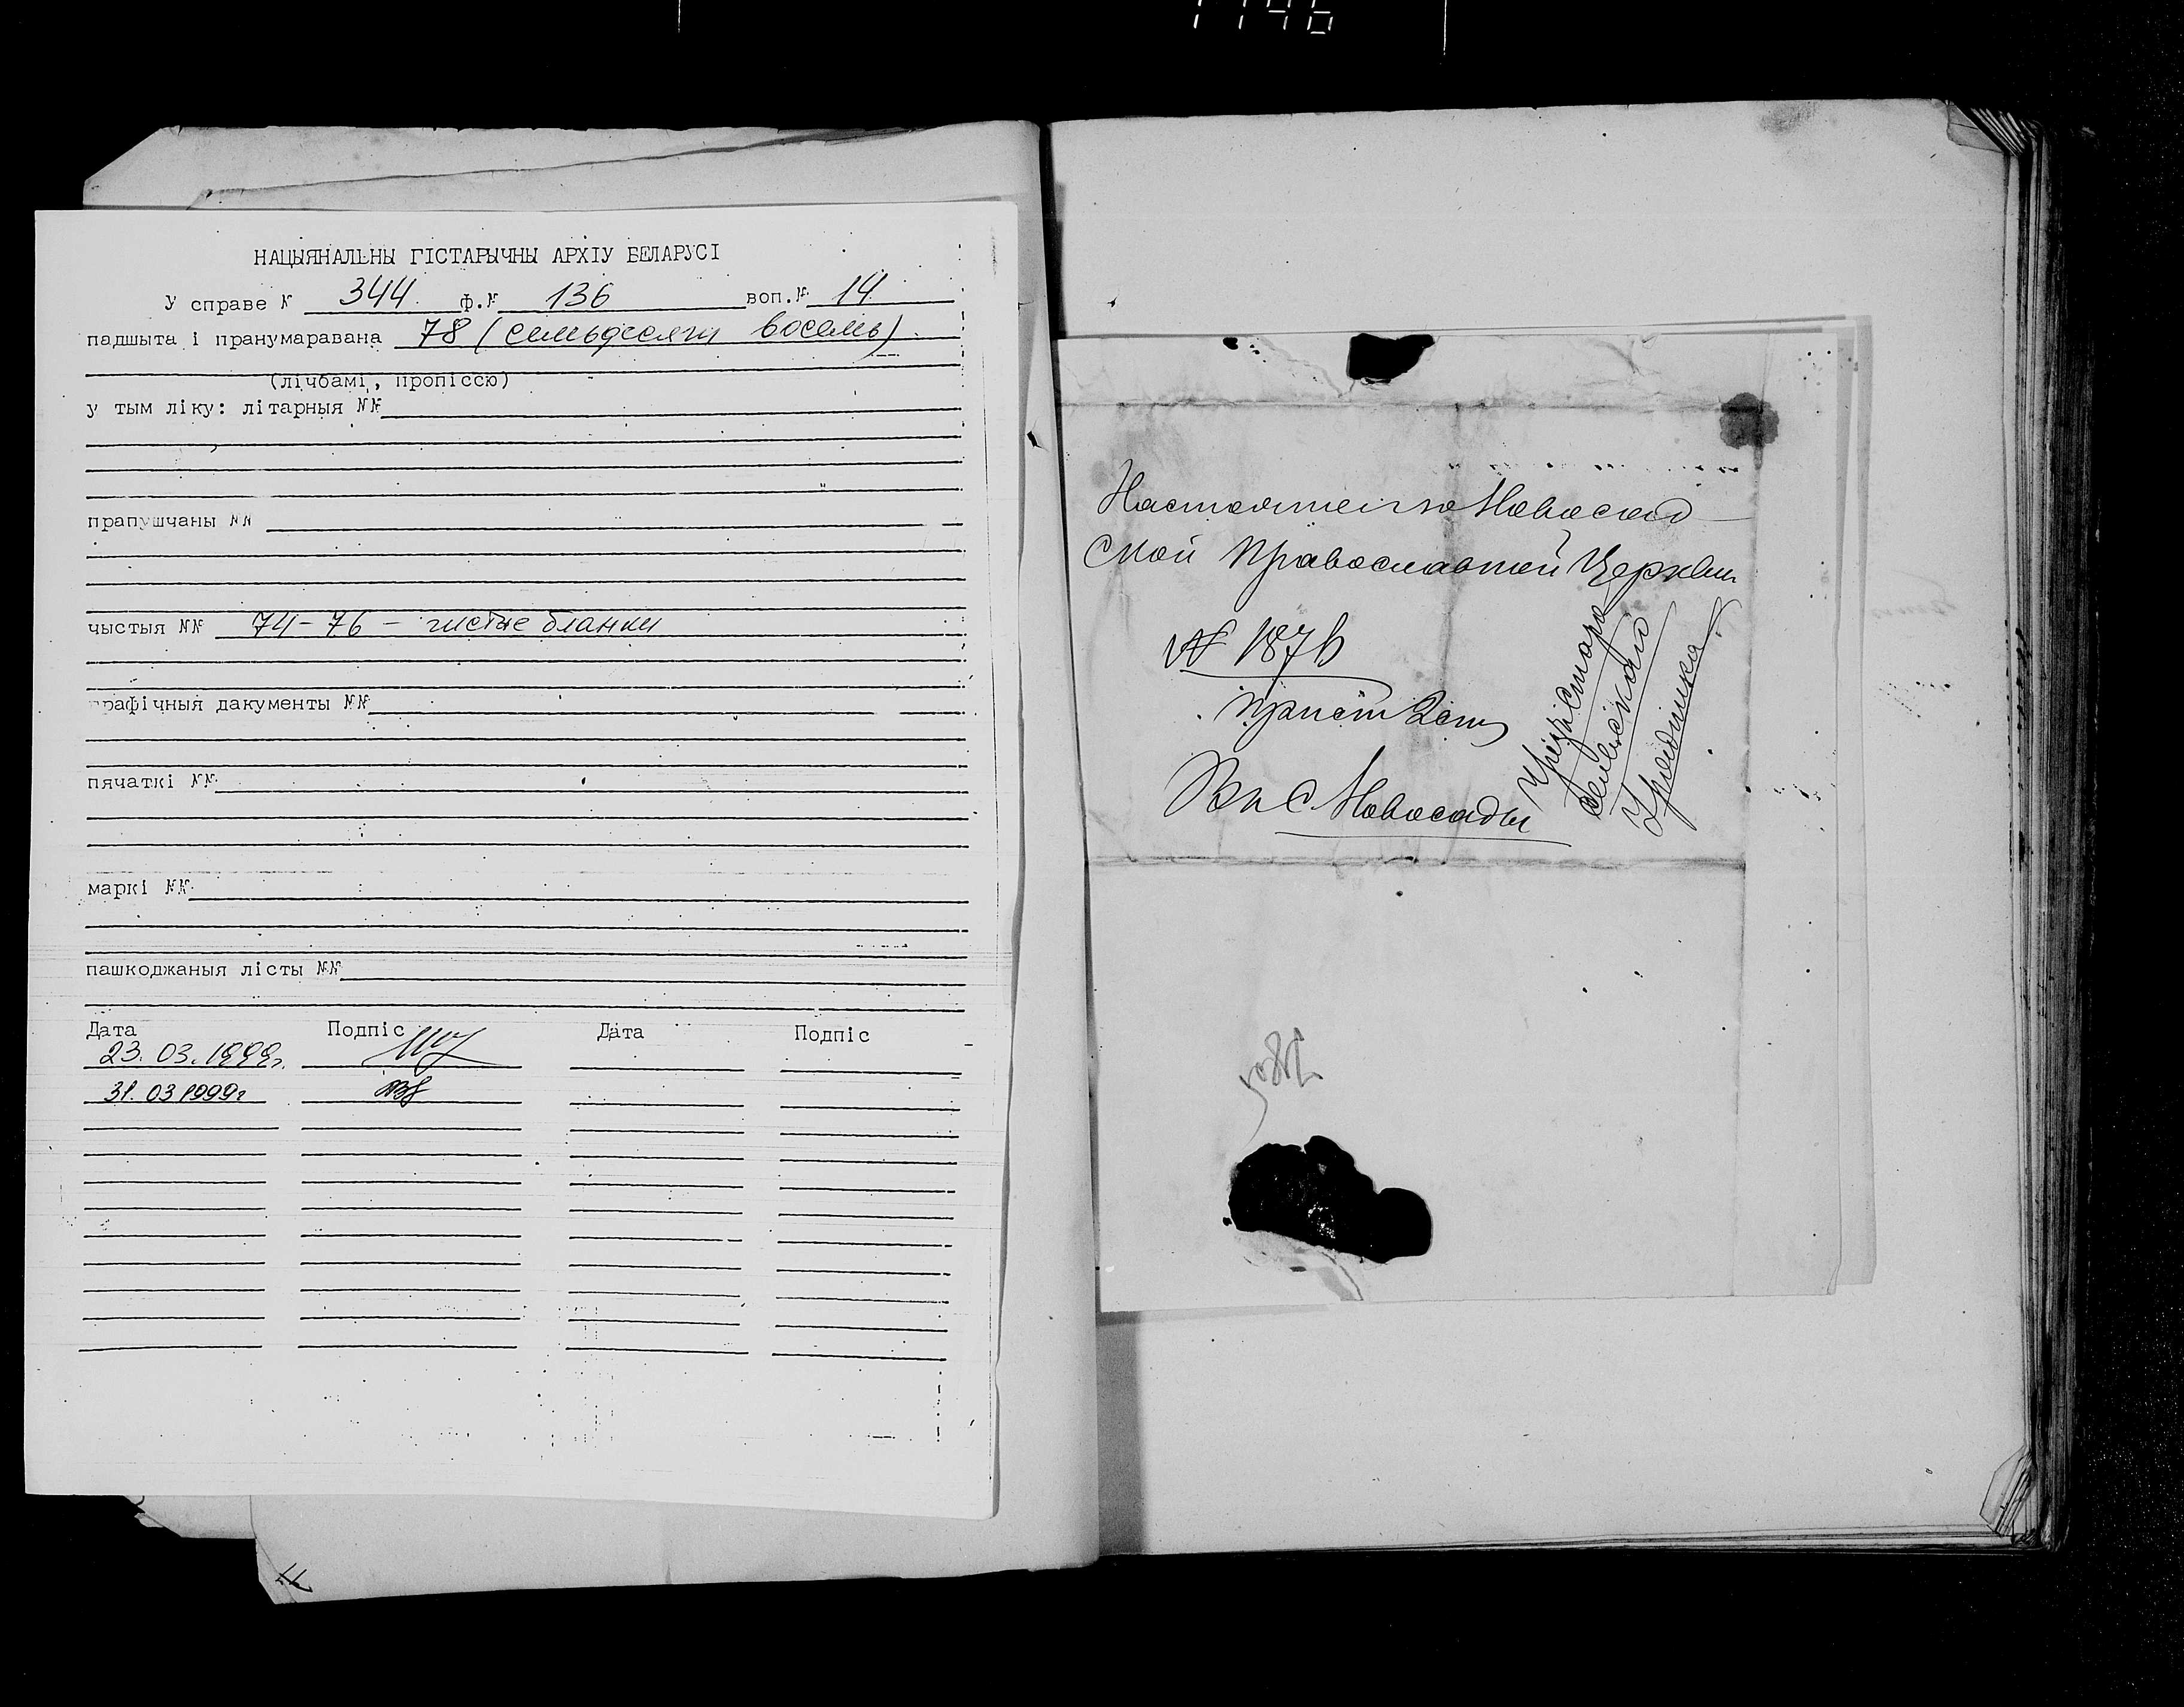 1146
НАЦЫЯНАЛЬНЫ ГІСТАРЫЧНЫ АРХІУ БЕЛАРУСІ
У справе № 344 ф.№ 136 воп.№ 14
падшыта і пранумаравана 78 (семьдесят восемь)
(лічбамі, пропіссю)
у тым ліку: літарныя №№
прапушчаны №№
чыстыя №№ 74-76 - чистые бланки
графічныя дакументы №№
пячаткі №№
маркі №№
пашкоджаныя лісты №№
Дата Подпіс Дата Подпіс
23.03.1999г.
31.03 1999г
Настоятелю Новосад-
ской Православной Церкви
№ 1876
Въ С. Новосады
сельскаго
Урядника